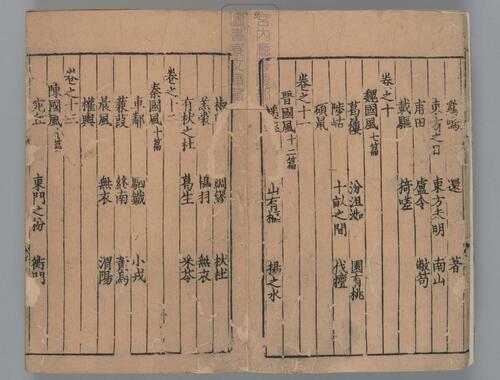 雞鳴 還 著
東方之日 東方未明 南山
甫田 盧令 敝笱
載驅 猗嗟
卷之十
魏國風七篇
葛屨 汾沮洳 園有桃
陟岵 十畝之間 伐檀
碩鼠
卷之十一
晉國風十二篇
山有樞 揚之水
椒聊 綢繆 杕杜
羔裘 鴇羽 無衣
有杕之杜 葛生 采苓
卷之十二
秦國風十篇
車鄰 駟鐵 小戎
蒹葭 終南 黃鳥
晨風 無衣 渭陽
權輿
卷之十三
陳國風十篇
宛丘 東門之枌 衡門